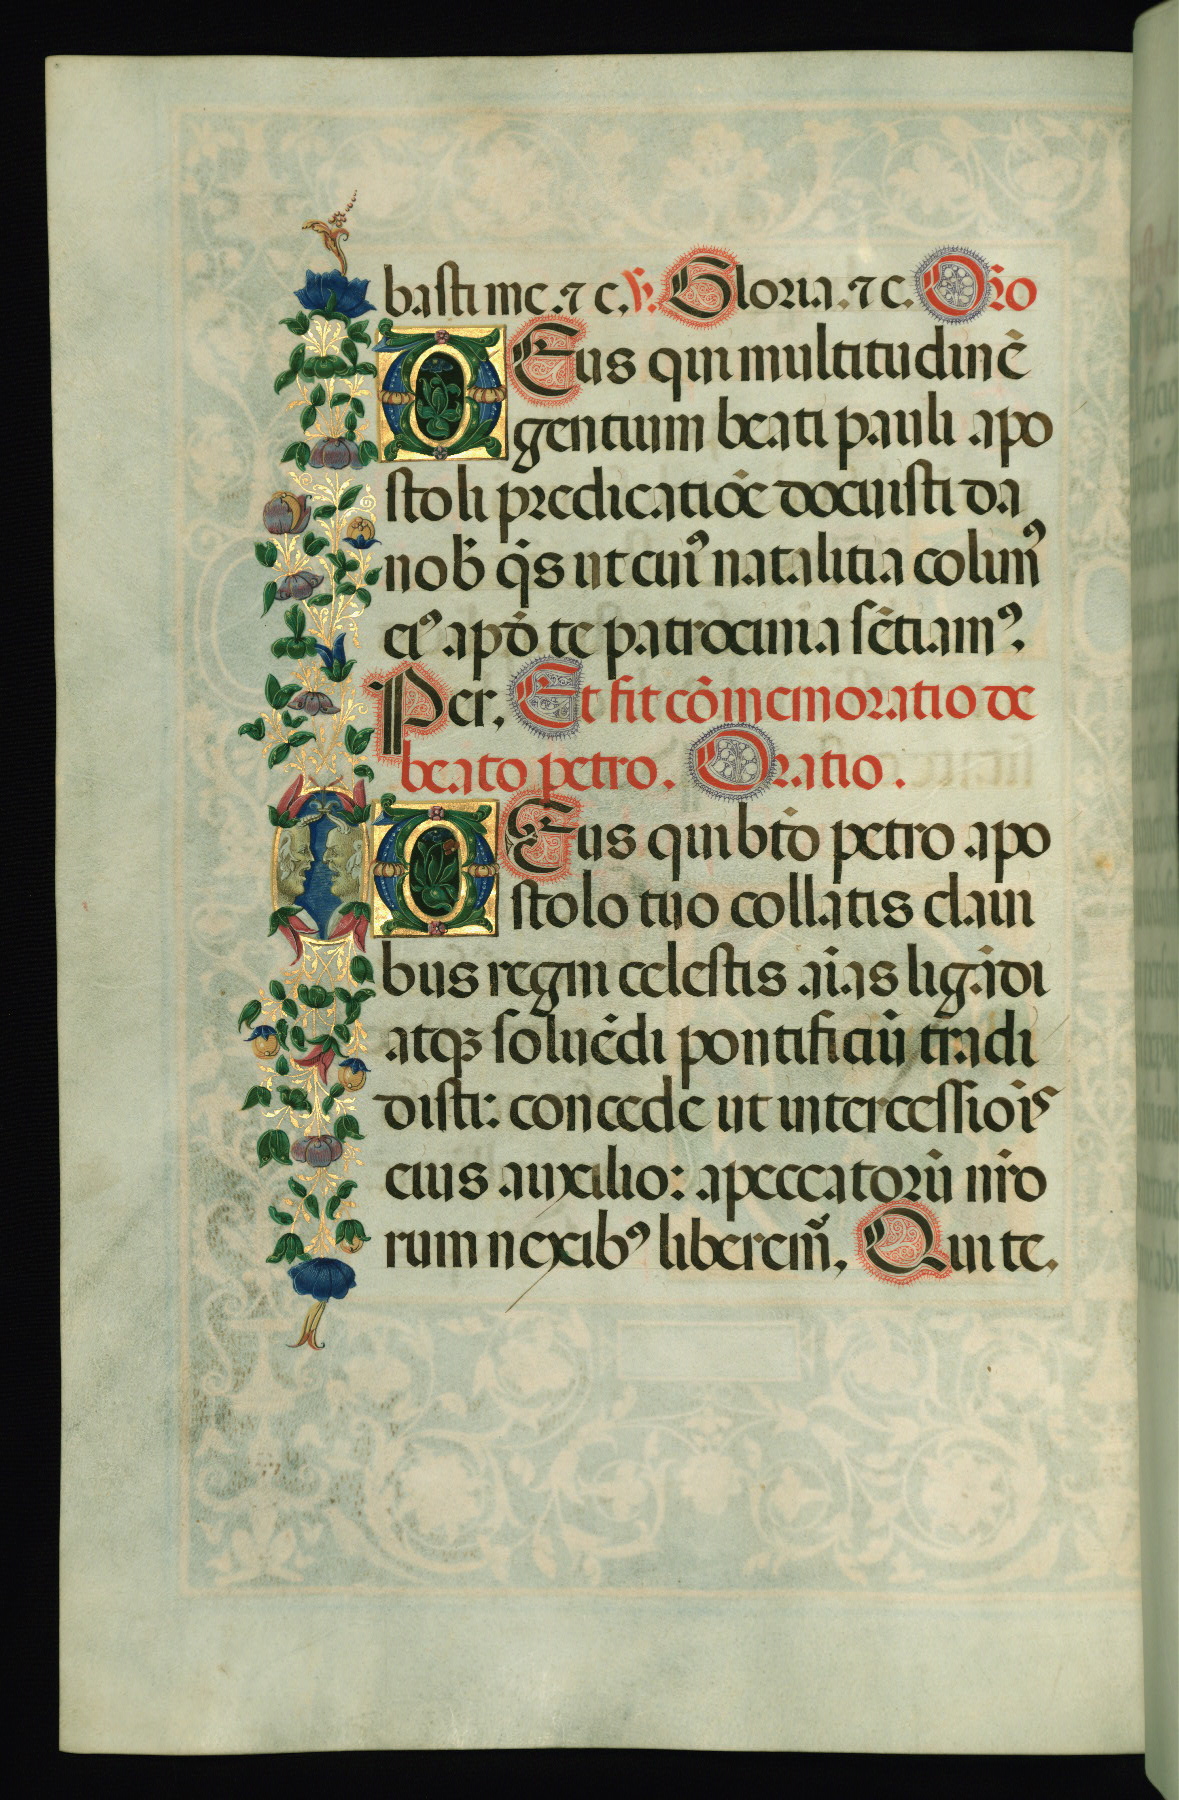 basti me. ⁊ c. ℣. Gloria. ⁊ c. Orō
DEus qui multitudinē
gentium beati pauli apo
stoli predicatiōe docuisti da
nob̄ q̄s ut cuiꝰ natalitia colimꝰ
eiꝰ apd̄ te patrocinia sētiamꝰ.
Per. Et fit cōmemoratio de
beato petro. Oratio.
DEus qui btō petro apo
stolo tuo collatis claui
bus regni celestis aīas ligādi
atqꝫ soluēdi pontificiū tradi
disti: concede ut intercessiōis
eius auxilio: a peccatorū nr̄o
rum nexibꝰ liberem̄. Qui te.